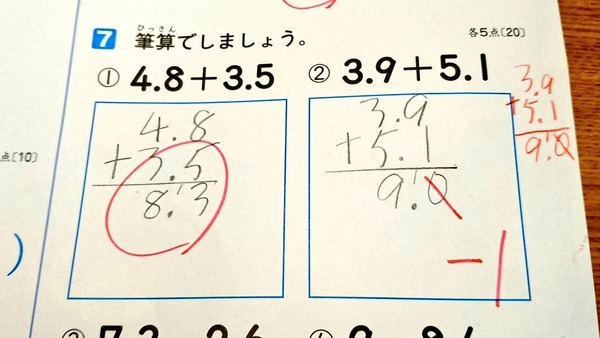 7 筆算でしましょう。 各5点〔20〕
ひっさん
① 4.8+3.5
② 3.9+5.1
4.8
+3.5
8.3
3.9
+5.1
9.0
-1
3.9
+5.1
9.0
点〔10〕
)